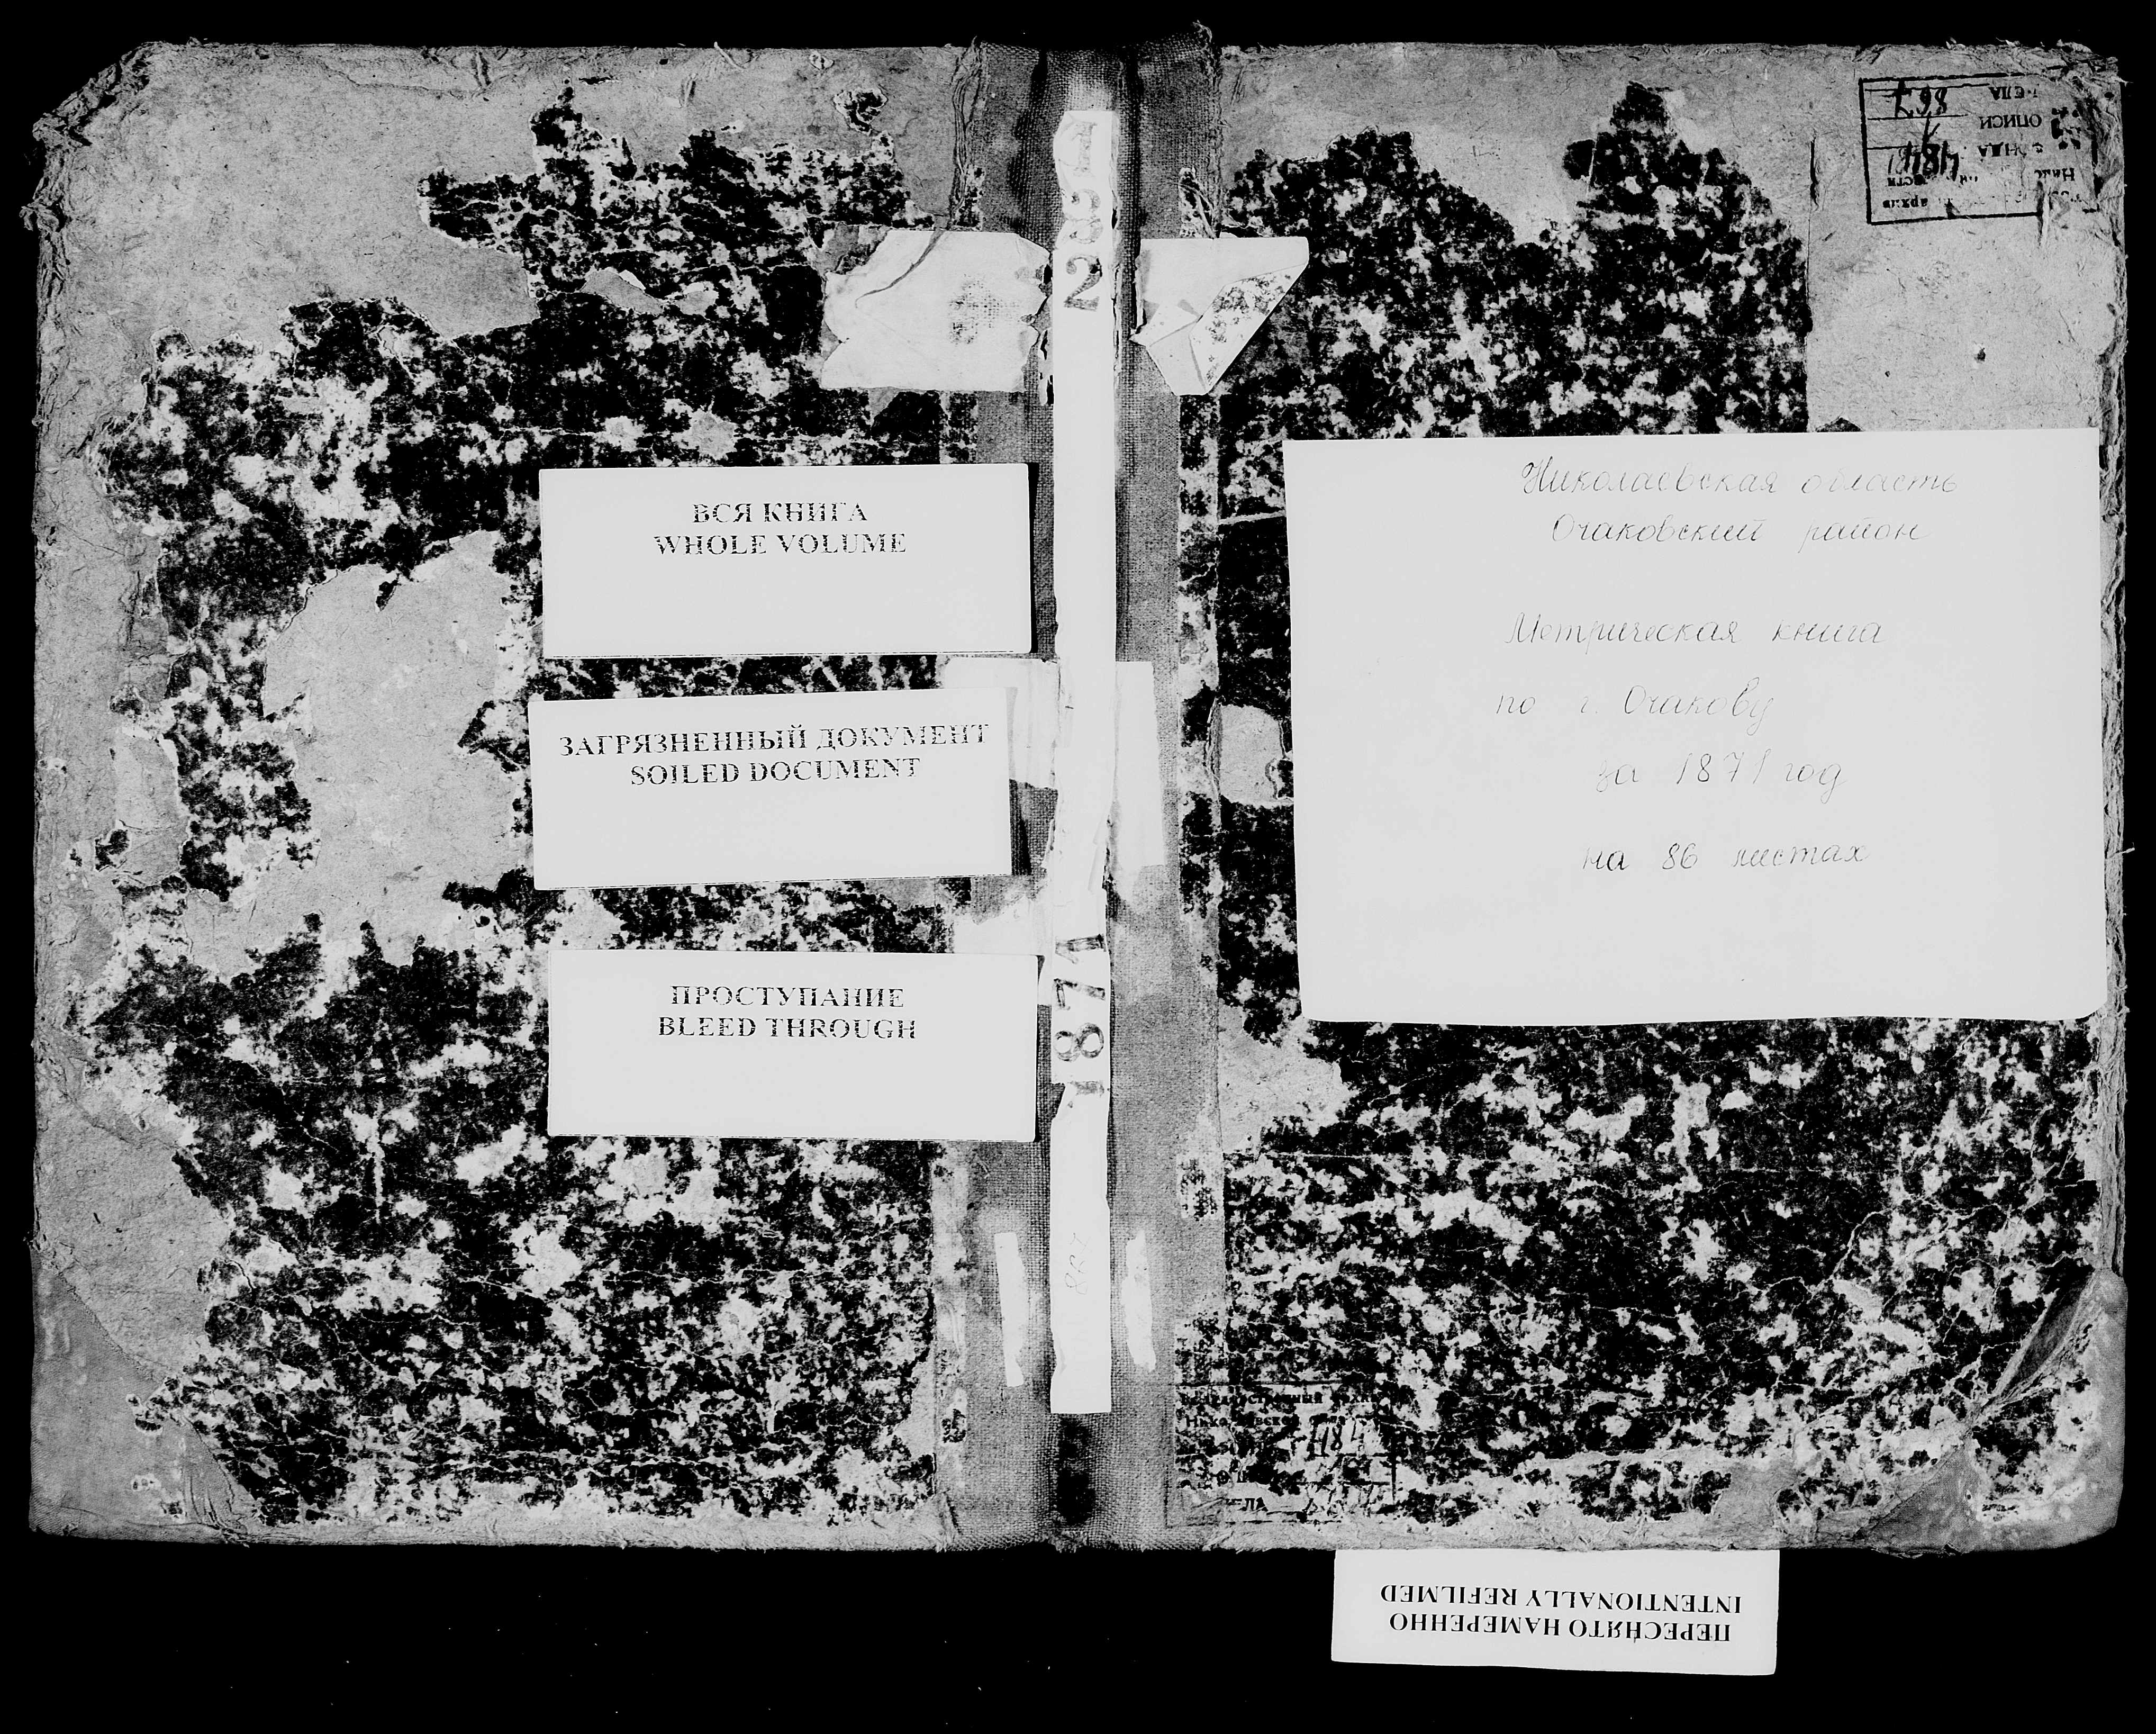 ВСЯ КНИГА
WHOLE VOLUME
ЗАГРЯЗНЕННЫЙ ДОКУМЕНТ
SOILED DOCUMENT
ПРОСТУПАНИЕ
BLEED THROUGH
1871
Николаевская область
Очаковский район
Метрическая книга
по г. Очакову
за 1871 год
на 86 листах
ОПИСИ
867
ПЕРЕСНЯТО НАМЕРЕННО
INTENTIONALLY REFILMED